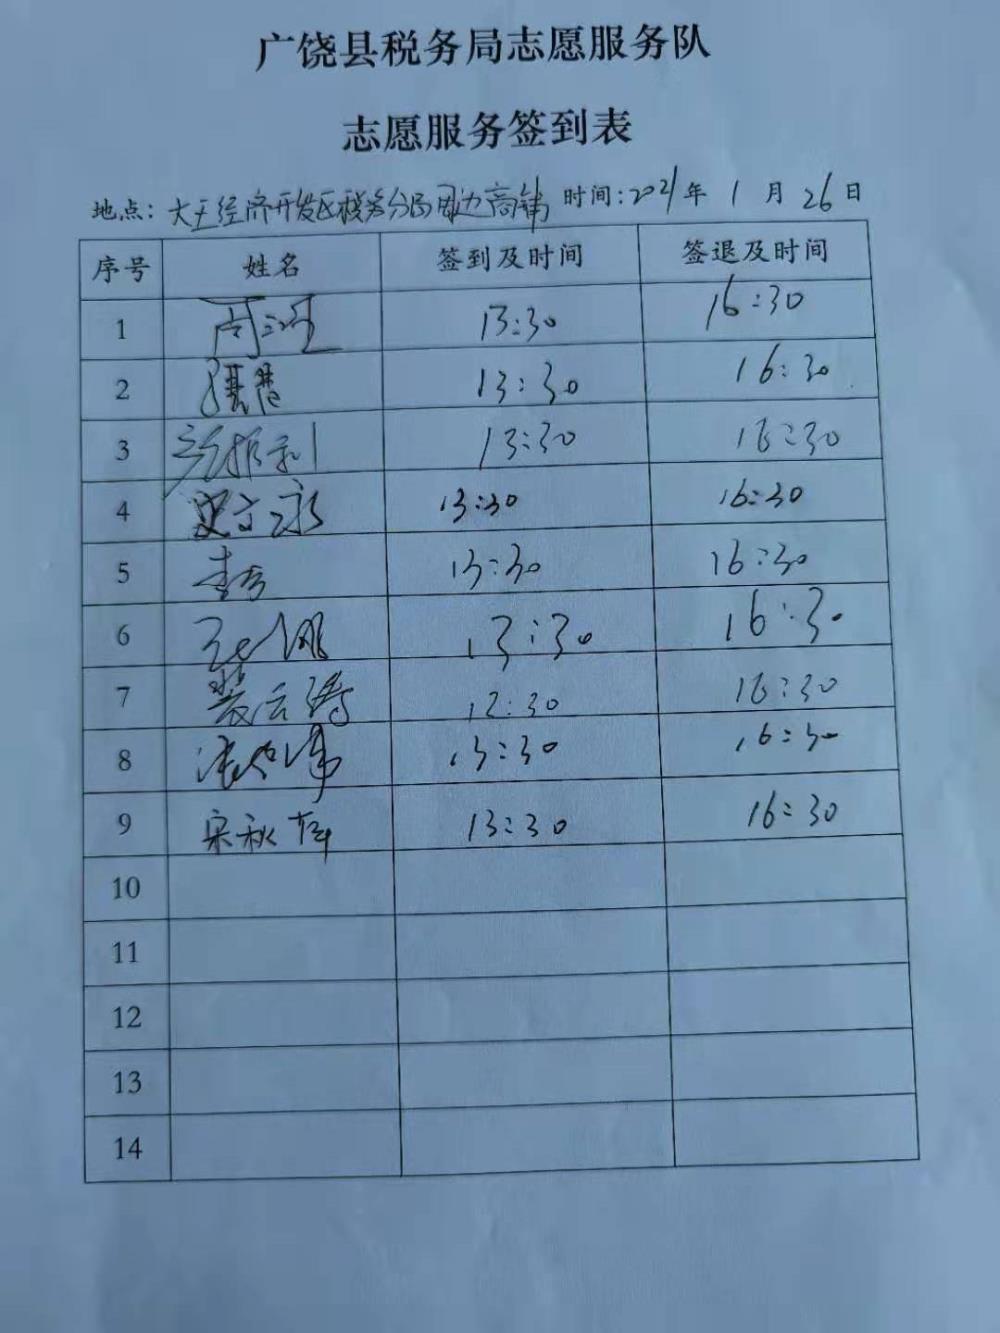 广饶县税务局志愿服务队
志愿服务签到表
地点:大王经济开发区税务分局周边商铺 时间:2021年1月26日
序号 姓名 签到及时间 签退及时间
1 13:30 16:30
2 13:30 16:30
3 13:30 16:30
4 史文永 13:30 16:30
5 13:30 16:30
6 13:30 16:30
7 13:30 16:30
8 13:30 16:30
9 宋秋萍 13:30 16:30
10
11
12
13
14